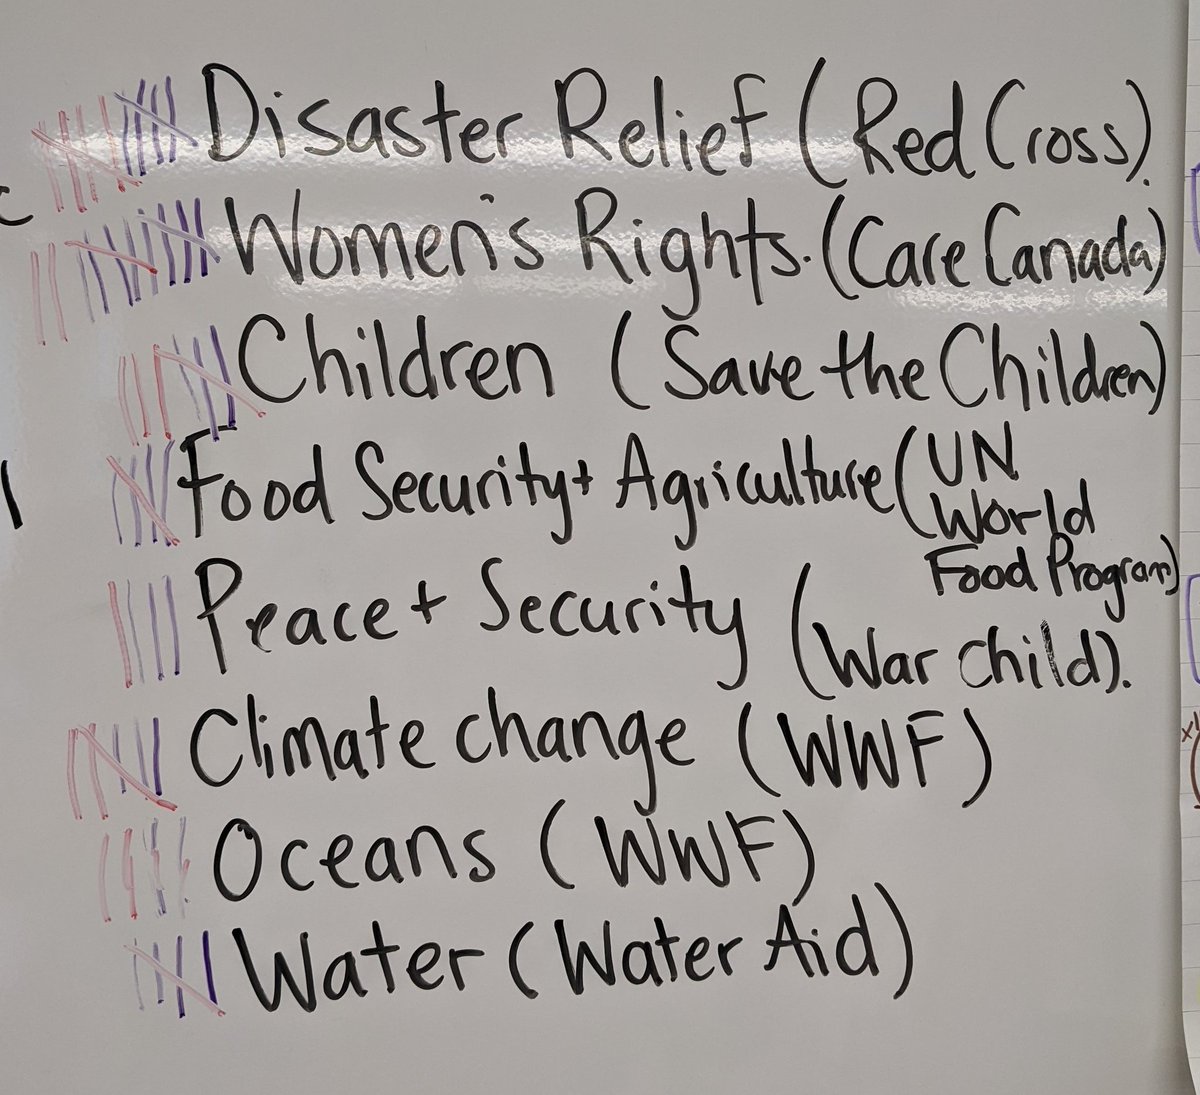 Disaster Relief (Red Cross).
Women's Rights. (Care Canada)
Children (Save the Children)
Food Security + Agriculture (UN
World
Food Program)
Peace + Security (War Child).
Climate change (WWF)
Oceans (WWF)
Water (Water Aid)